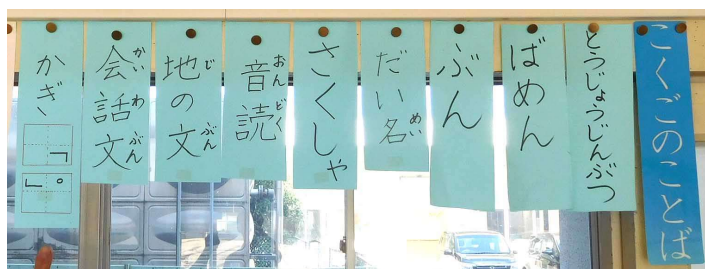 こくごのことば
とうじょうじんぶつ
ばめん
ぶん
だい名
めい
さくしゃ
音読
おんどく
地の文
じ ぶん
会話文
かいわぶん
かぎ
「
。」